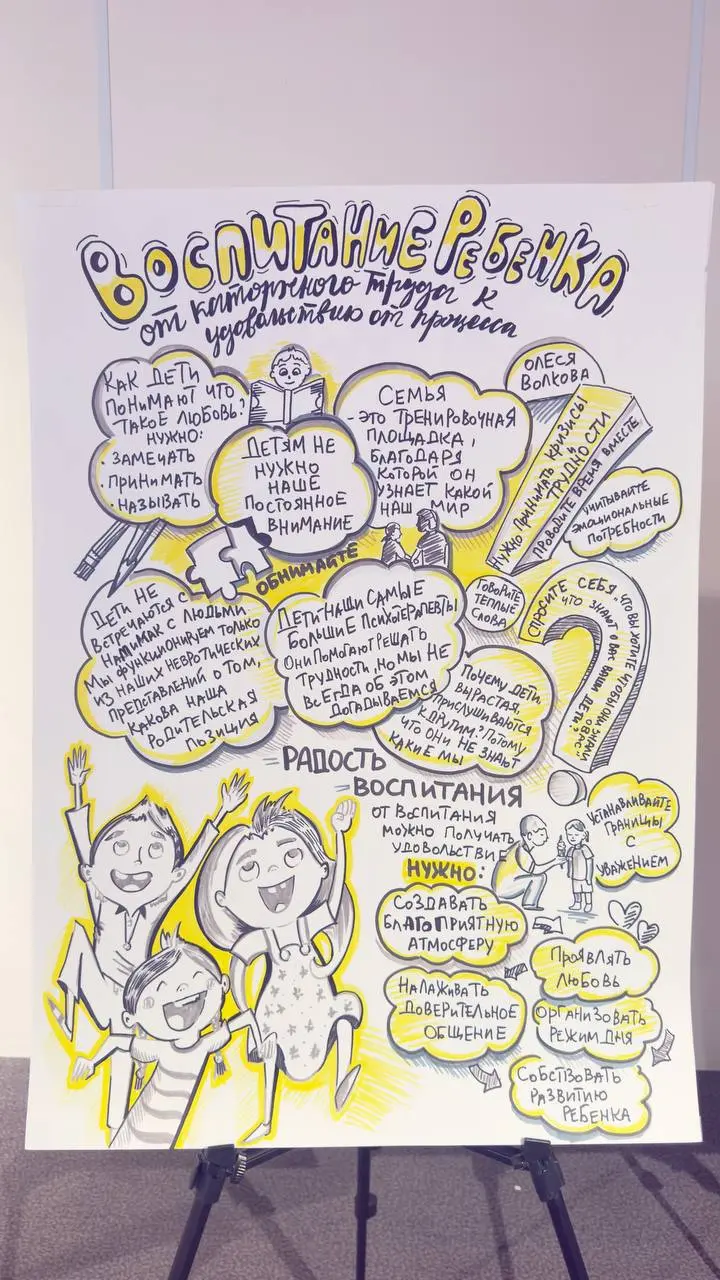 ВОСПИТАНИЕ РЕБЕНКА
от каторжного труда к
удовольствию от процесса
КАК ДЕТИ
ПОНИМАЮТ ЧТО
ТАКОЕ ЛЮБОВЬ?
НУЖНО:
• ЗАМЕЧАТЬ
• ПРИНИМАТЬ
• НАЗЫВАТЬ
ДЕТЯМ НЕ
НУЖНО
НАШЕ
ПОСТОЯННОЕ
ВНИМАНИЕ
СЕМЬЯ
- ЭТО ТРЕНИРОВОЧНАЯ
ПЛОЩАДКА,
БЛАГОДАРЯ
КОТОРОЙ ОН
УЗНАЕТ КАКОЙ
НАШ МИР
ОЛЕСЯ
ВОЛКОВА
НУЖНО ПРИНИМАТЬ КРИЗИСЫ
И
ТРУДНОСТИ
ПРОВОДИТЕ ВРЕМЯ ВМЕСТЕ
УЧИТЫВАЙТЕ
ЭМОЦИОНАЛЬНЫЕ
ПОТРЕБНОСТИ
ОБНИМАЙТЕ
ДЕТИ НЕ
ВСТРЕЧАЮТСЯ С
НАМИ КАК С ЛЮДЬМИ
МЫ ФУНКЦИОНИРУЕМ ТОЛЬКО
ИЗ НАШИХ НЕВРОТИЧЕСКИХ
ПРЕДСТАВЛЕНИЙ О ТОМ,
КАКОВА НАША
РОДИТЕЛЬСКАЯ
ПОЗИЦИЯ
ДЕТИ НАШИ САМЫЕ
БОЛЬШИЕ ПСИХОТЕРАПЕВТЫ
ОНИ ПОМОГАЮТ РЕШАТЬ
ТРУДНОСТИ, НО МЫ НЕ
ВСЕГДА ОБ ЭТОМ
ДОГАДЫВАЕМСЯ
ГОВОРИТЕ
ТЕПЛЫЕ
СЛОВА
ПОЧЕМУ ДЕТИ,
ВЫРАСТАЯ,
ПРИСЛУШИВАЮТСЯ
К ДРУГИМ? ПОТОМУ
ЧТО ОНИ НЕ ЗНАЮТ
КАКИЕ МЫ
СПРОСИТЕ СЕБЯ, ЧТО ВЫ ХОТИТЕ ЧТОБЫ ОНИ ЗНАЛИ
О ВАС
ЧТО ЗНАЮТ О ВАС ВАШИ ДЕТИ?
РАДОСТЬ
ВОСПИТАНИЯ
ОТ ВОСПИТАНИЯ
МОЖНО ПОЛУЧАТЬ
УДОВОЛЬСТВИЕ
НУЖНО:
УСТАНАВЛИВАЙТЕ
ГРАНИЦЫ
С
УВАЖЕНИЕМ
СОЗДАВАТЬ
БЛАГОПРИЯТНУЮ
АТМОСФЕРУ
ПРОЯВЛЯТЬ
ЛЮБОВЬ
НАЛАЖИВАТЬ
ДОВЕРИТЕЛЬНОЕ
ОБЩЕНИЕ
ОРГАНИЗОВАТЬ
РЕЖИМ ДНЯ
СОБСТВОВАТЬ
РАЗВИТИЮ
РЕБЕНКА